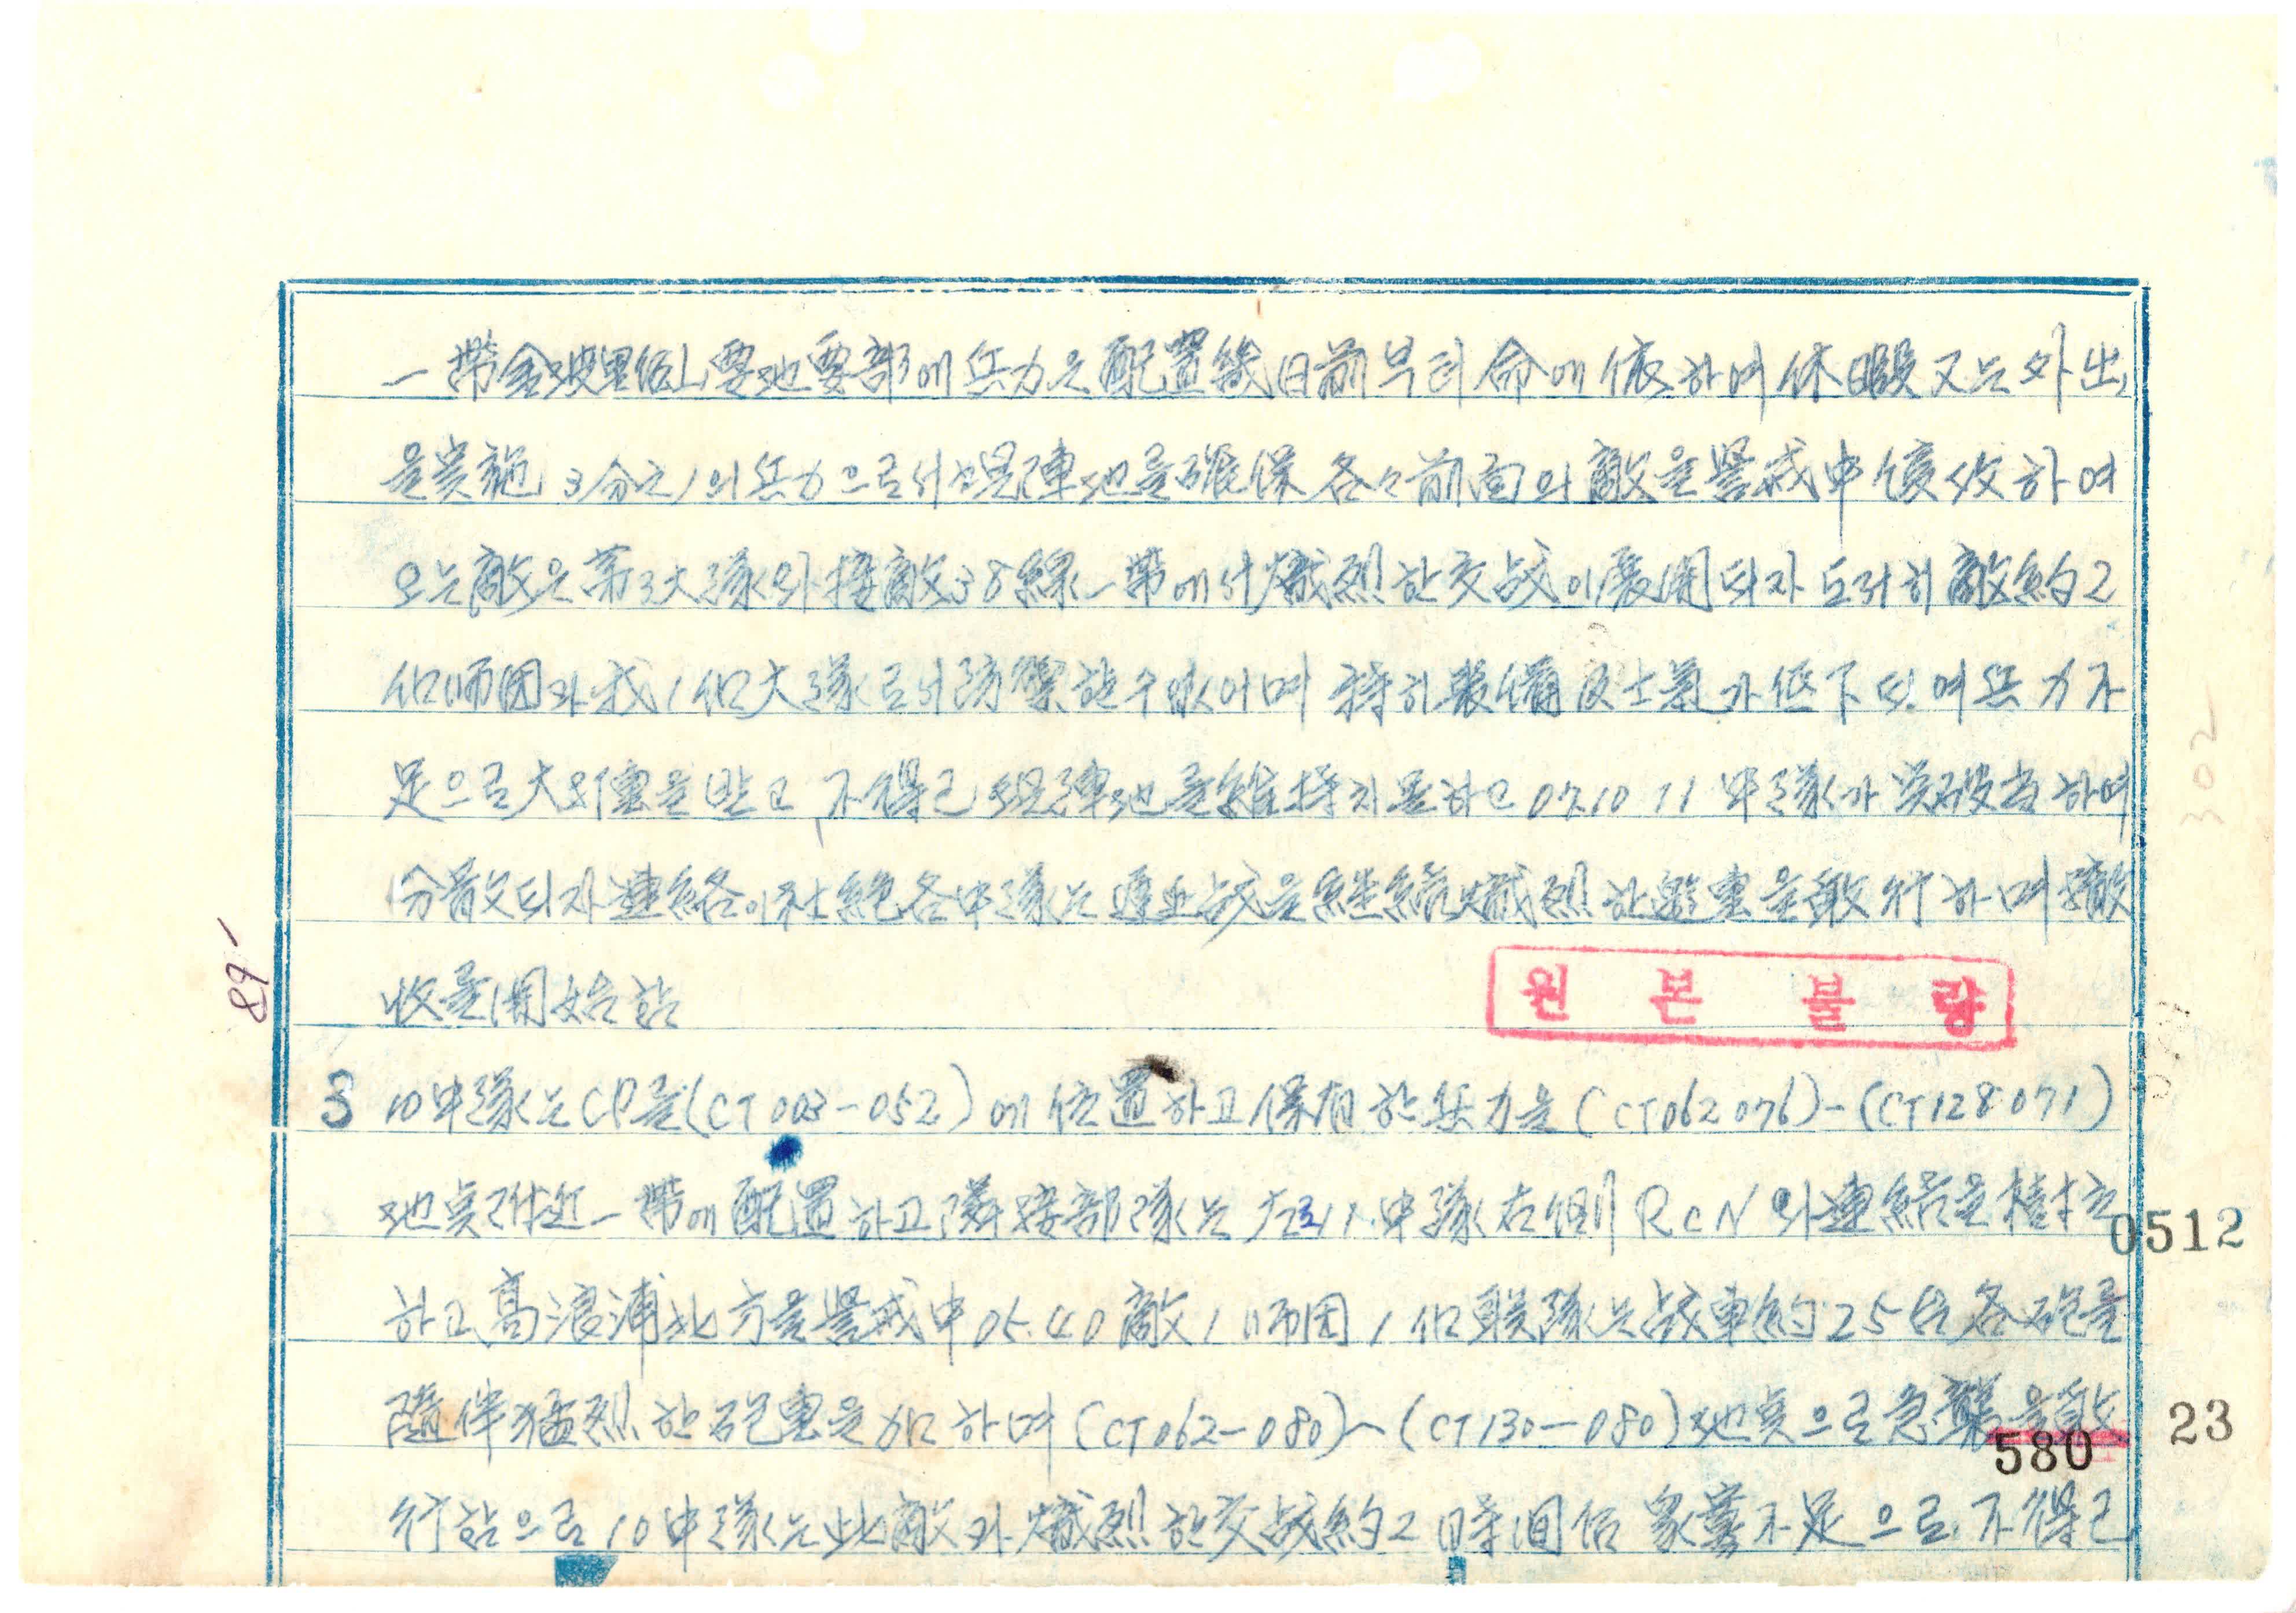 一帶金坡里 要地要部에 兵力은 配置 幾日前부터 命에 依하여 休暇 又는 外出
을 実施 3分之1의 兵力으로서 現陣地를 確保 各々 前面의 敵을 警戒中 하여
오는 敵은 第3大隊와 接敵 38線一帶에서 熾烈한 交战이 展開되자 도저히 敵 約2
個師団과 我1個大隊로서 防禦할 수 없으며 特히 裝備 及 士氣가 低下되여 兵力不
足으로 大 을 받고 不得已 現陣地를 維持치 못하고 07.10 11中隊가 하여
分散되자 連絡이 杜絶 各中隊는 战을 継続 熾烈한 을 敢行하며 撤
收를 開始함
원본불량
3 10中隊는 CP를 (CT 003-052)에 位置하고 保有한 兵力을 (CT062 076)-(CT128 071)
地点 附近一帶에 配置하고 隣接部隊는 左11中隊 右側 RCN와 連絡을 樹立
하고 高浪浦 北方을 警戒中 05.40 敵1師団 1個联隊는 战車 約25台 各砲를
隨伴 猛烈한 砲 을 加하며 (CT062-080)~(CT130-080)地点으로 急襲을 敢
行함으로 10中隊는 此敵과 熾烈한 交战 約2時間 不足으로 不得已
89
302
0512
23
580